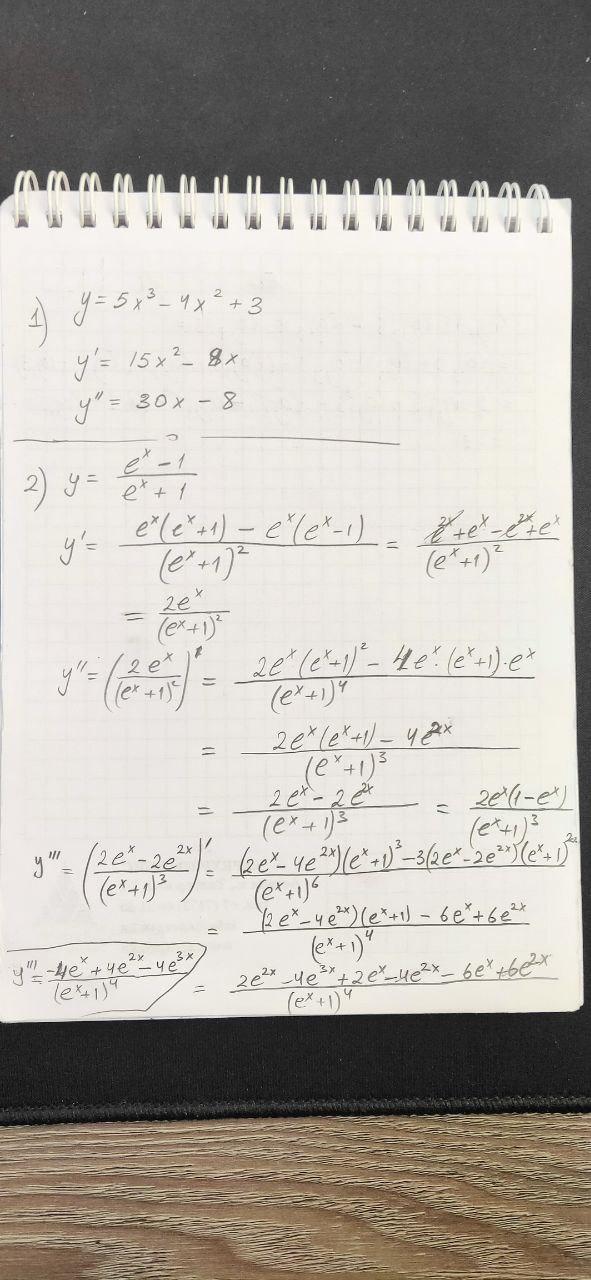 1) y = 5x³ - 4x² + 3
y' = 15x² - 8x
y'' = 30x - 8
2) y = (eˣ - 1)/(eˣ + 1)
y' = (eˣ(eˣ+1) - eˣ(eˣ-1))/(eˣ+1)² = (e²ˣ + eˣ - e²ˣ + eˣ)/(eˣ+1)²
= 2eˣ/(eˣ+1)²
y'' = (2eˣ/(eˣ+1)²)' = (2eˣ(eˣ+1)² - 4eˣ·(eˣ+1)·eˣ)/(eˣ+1)⁴
= (2eˣ(eˣ+1) - 4e²ˣ)/(eˣ+1)³
= (2eˣ - 2e²ˣ)/(eˣ+1)³ = 2eˣ(1-eˣ)/(eˣ+1)³
y''' = ((2eˣ - 2e²ˣ)/(eˣ+1)³)' = ((2eˣ - 4e²ˣ)(eˣ+1)³ - 3(2eˣ - 2e²ˣ)(eˣ+1)²eˣ)/(eˣ+1)⁶
= ((2eˣ - 4e²ˣ)(eˣ+1) - 6eˣ + 6e²ˣ)/(eˣ+1)⁴
= (2e²ˣ - 4e³ˣ + 2eˣ - 4e²ˣ - 6eˣ + 6e²ˣ)/(eˣ+1)⁴
y''' = (-4eˣ + 4e²ˣ - 4e³ˣ)/(eˣ+1)⁴